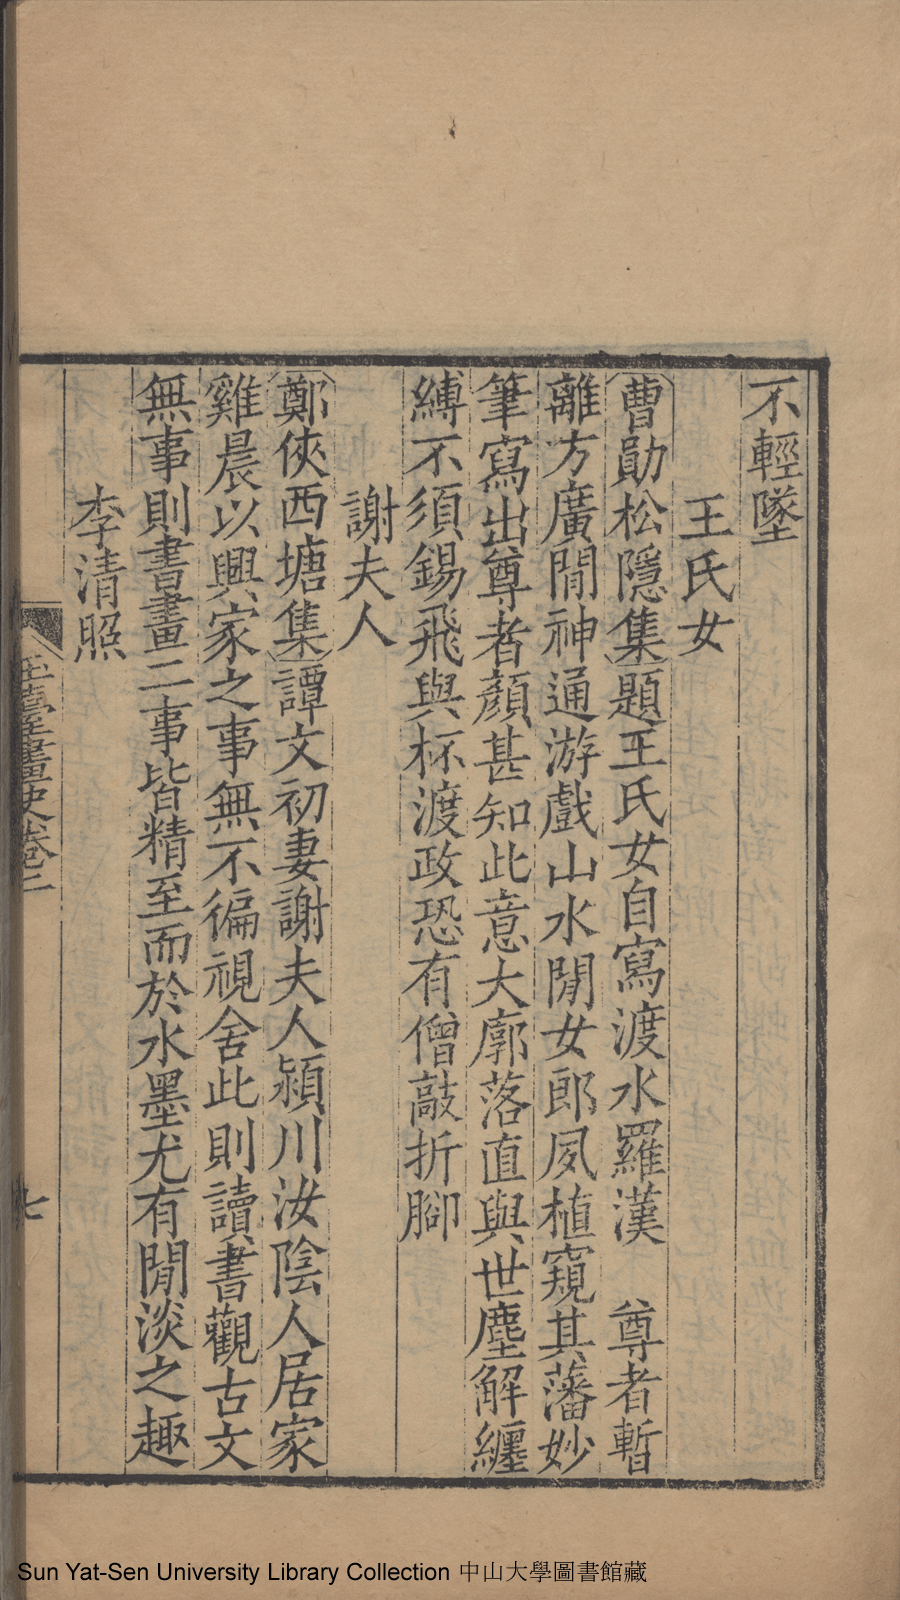 不輕墜
王氏女
曹勛松隱集題王氏女自寫渡水羅漢　尊者暫
離方廣閒神通游戲山水閒女郎夙植窺其藩妙
筆寫出尊者顏甚知此意大廓落直與世塵解纏
縛不須錫飛與杯渡政恐有僧敲折腳
謝夫人
鄭俠西塘集譚文初妻謝夫人潁川汝陰人居家
雞晨以興家之事無不徧視舍此則讀書觀古文
無事則書畫二事皆精至而於水墨尤有閒淡之趣
李清照
玉臺畫史卷二
七
Sun Yat-Sen University Library Collection 中山大學圖書館藏